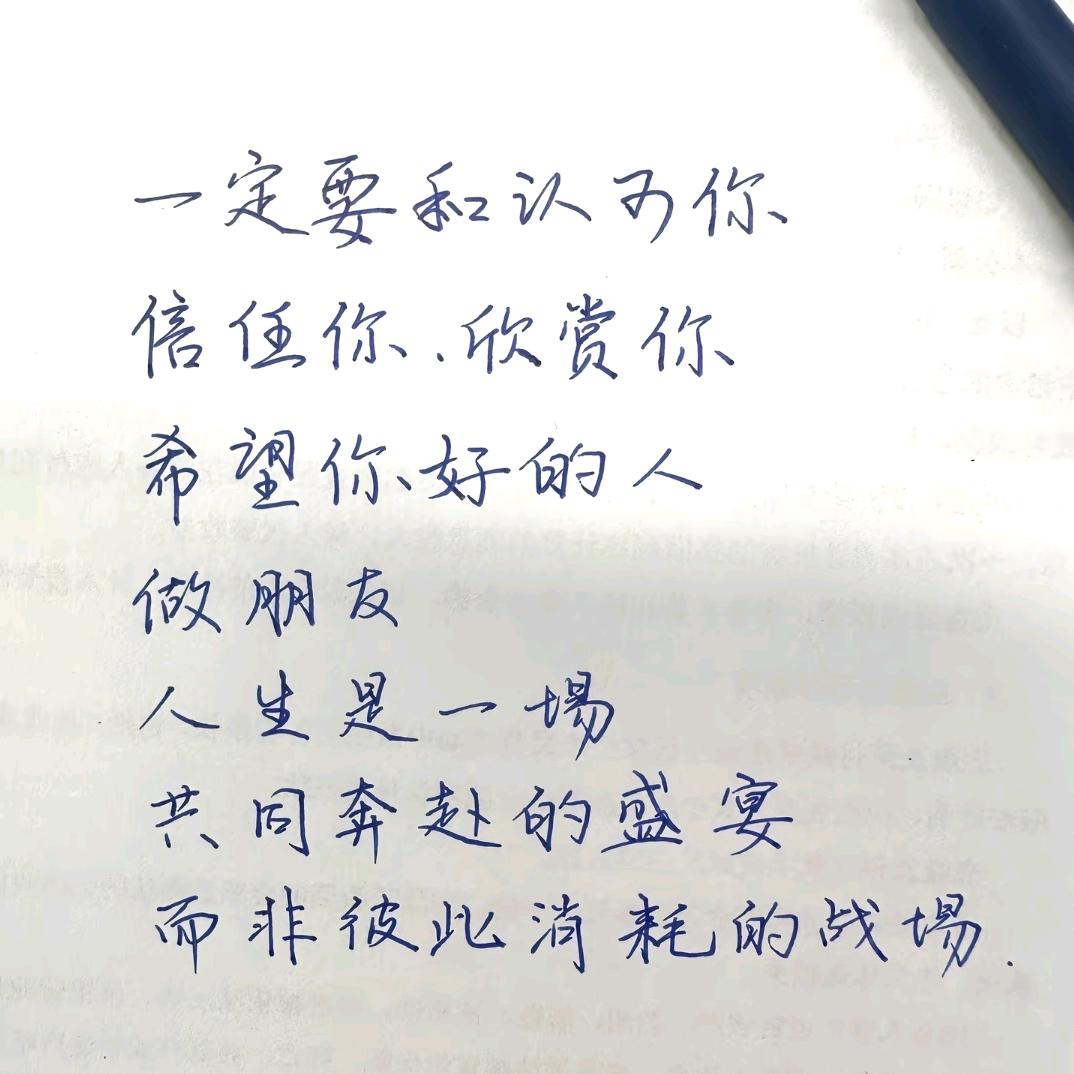 一定要和认可你
信任你、欣赏你
希望你好的人
做朋友
人生是一場
共同奔赴的盛宴
而非彼此消耗的战場.